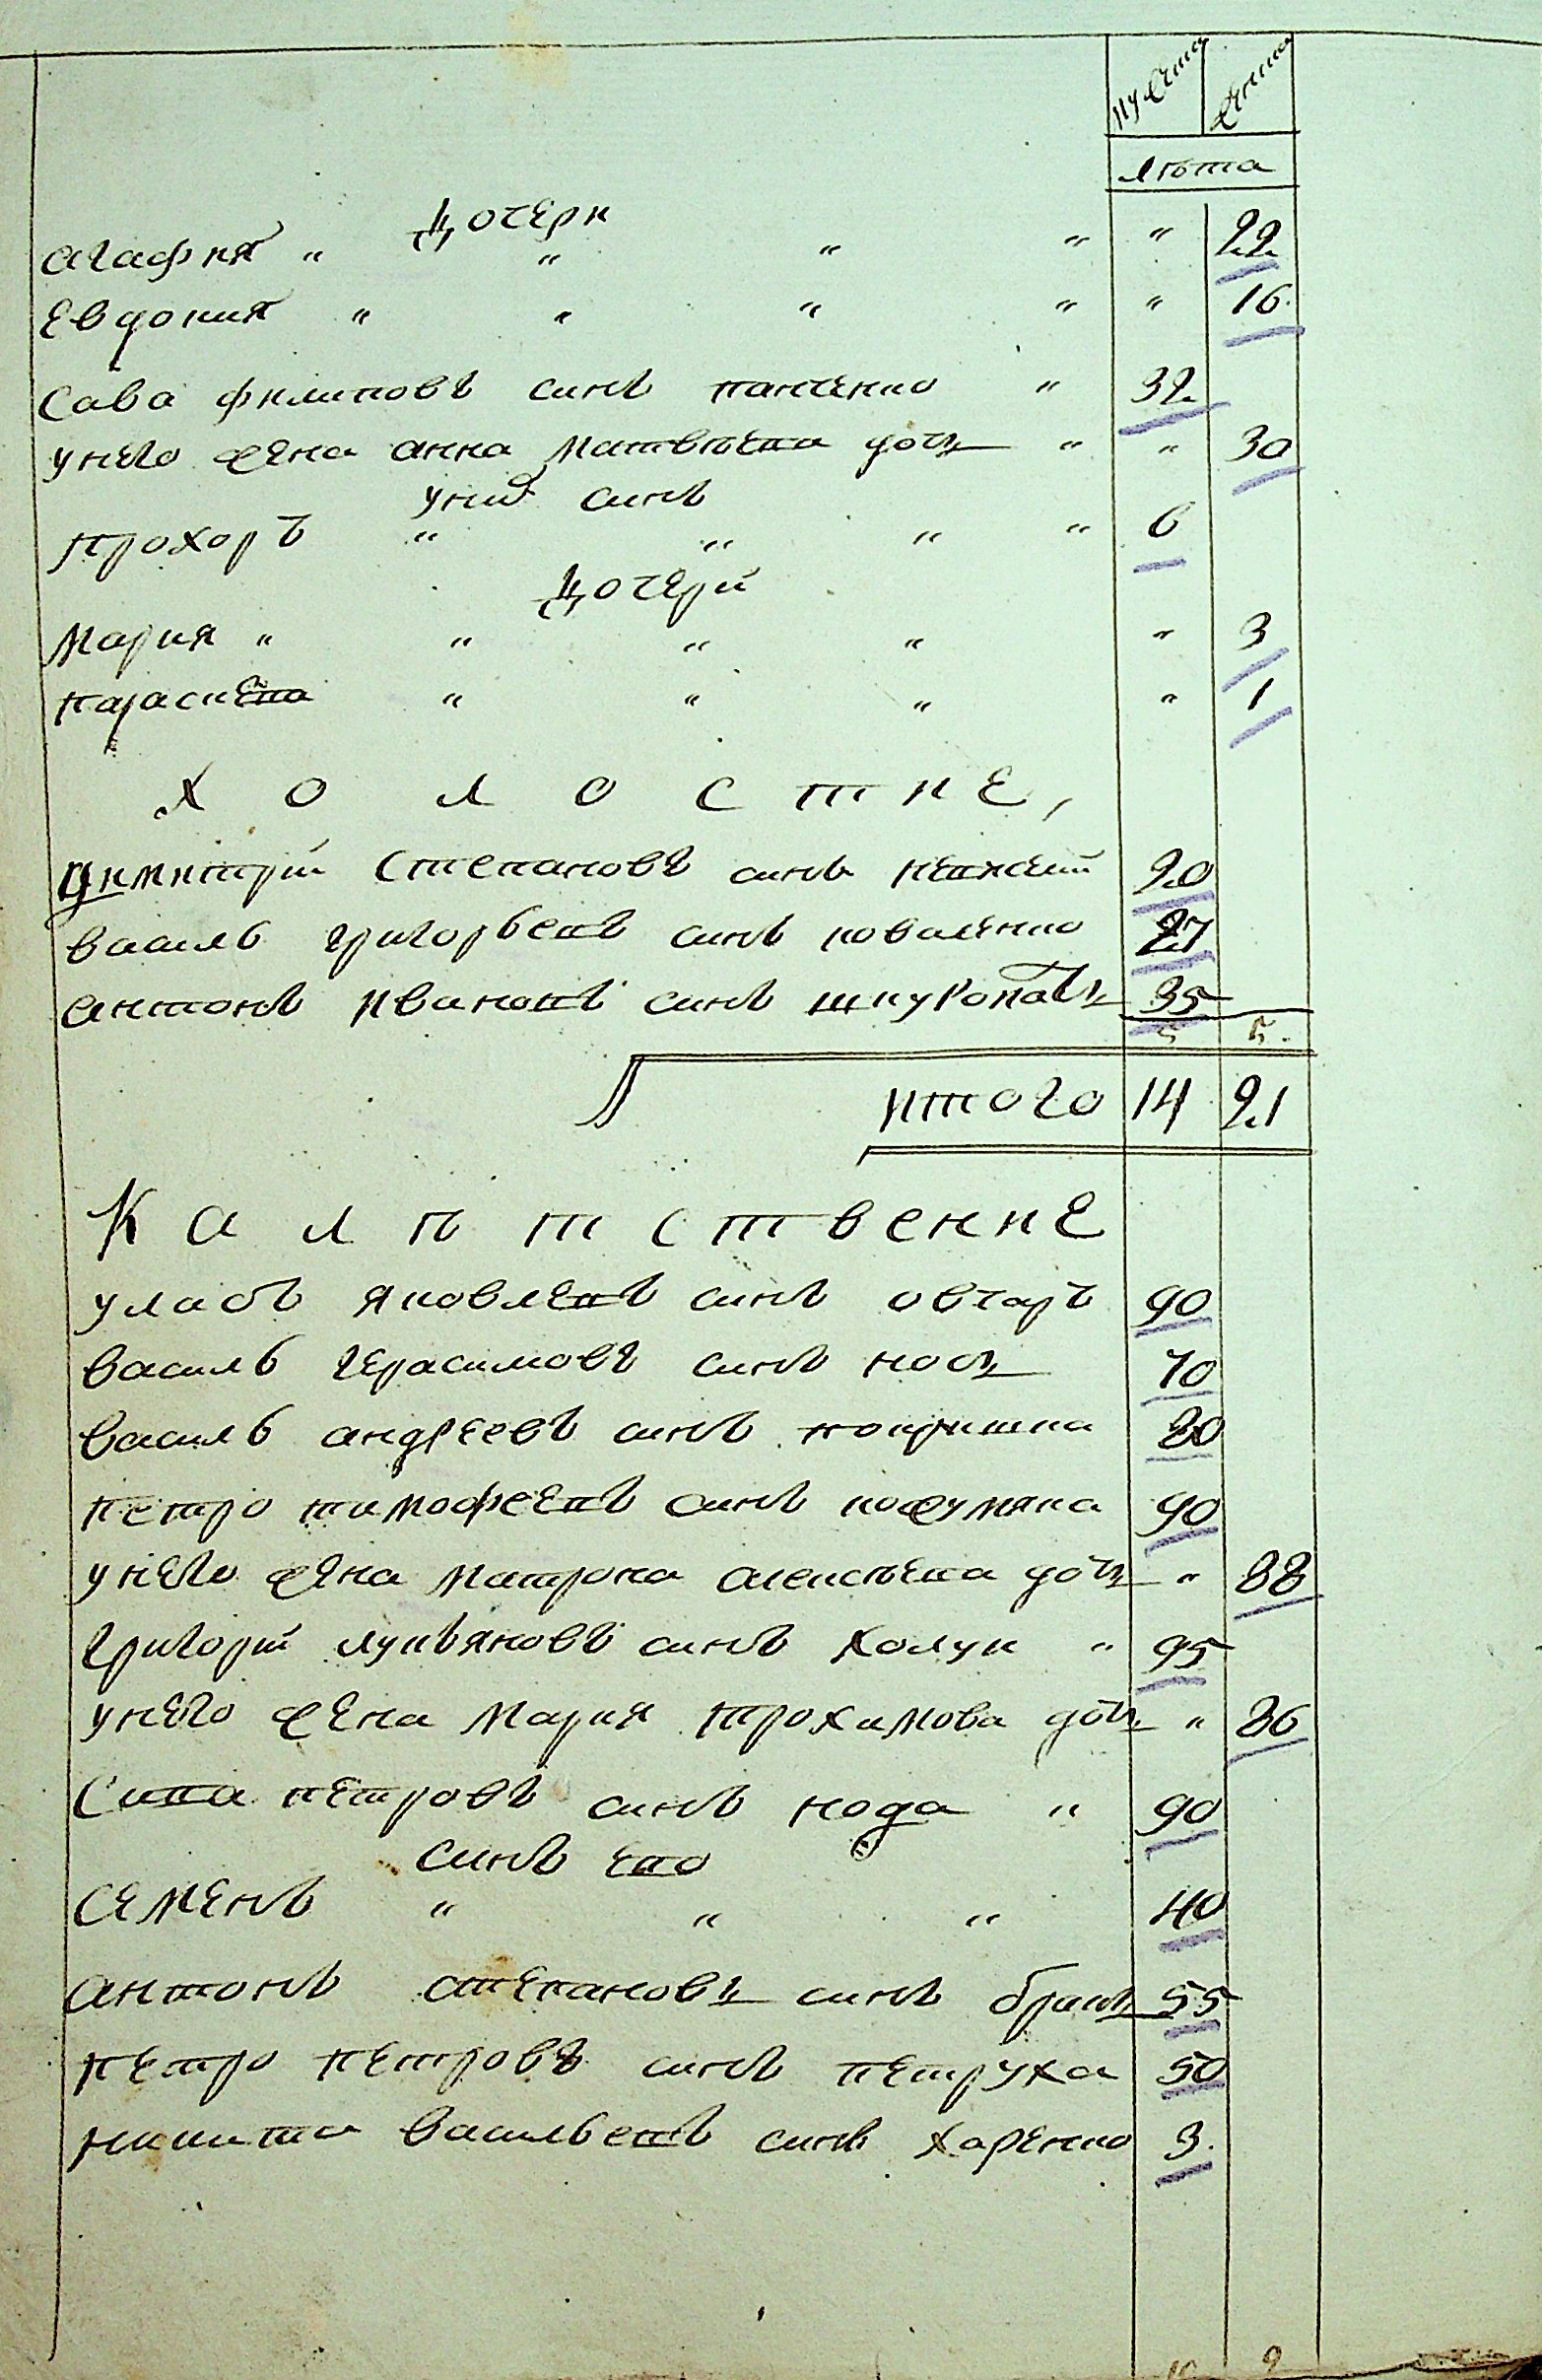 мужеска женска
лѣта
Дочери
агафия " " " " " 22
Евдокия " " " " " 16
Сава филиповъ синъ панченко " 32
унего жена анна матвѣева дочь " " 30
уних синъ
прохоръ " " " " 6
Дочери
Мария " " " " " 3
параскева " " " " 1
Холостие,
Димитрий Степановъ синъ 20
василь григорьевъ синъ коваленко 27
антонъ ивановъ синъ шкуропатъ 35
5 5.
итого 14 21
Калѣтственние
уласъ яковлевъ синъ овчаръ 90
василь герасимовъ синъ носъ 70
василь андреевъ синъ покришка 80
петро тимофеевъ синъ кожумяка 90
унего жена матрона алексѣева дочь " 88
григорий лукъяновъ синъ холун " 95
унего жена Мария трохимова дочь " 86
Сава петровъ синъ кода " 90
синъ его
Семенъ " " " 40
антонъ степановъ синъ 55
петро петровъ синъ петруха 50
никита васильевъ синъ харенко 3.
10 2